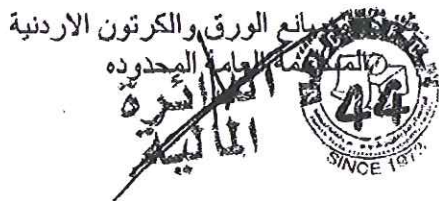 مصانع الورق والكرتون الاردنية
المساهمة العامة المحدوده
الدائرة
المالية
44
SINCE 1972